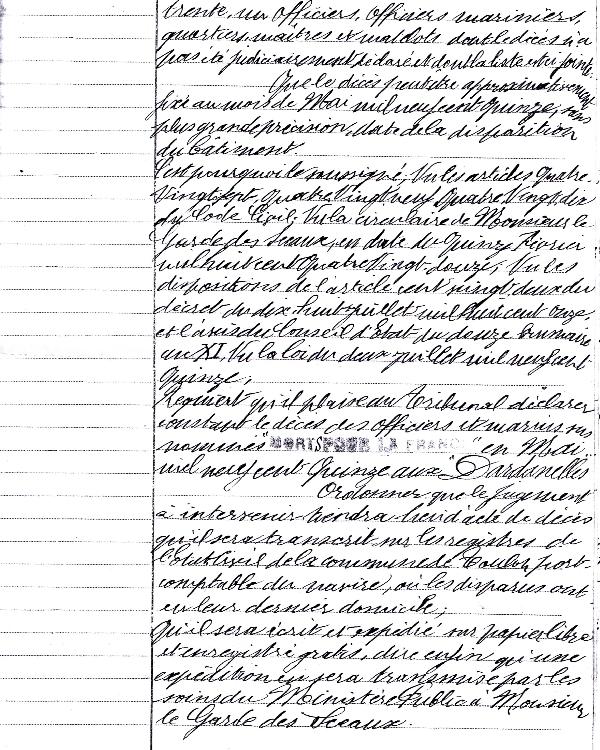 trente, un officiers, officiers mariniers,
quartiers, maîtres et matelots dont le décès n'a
pas été judiciairement déclaré et dont la liste est ci jointe.
Que le décès peut être approximativement
fixé au mois de Mai mil neuf cent quinze, sans
plus grande précision, date de la disparition
du bâtiment.
C'est pourquoi le soussigné, Vu les articles quatre
Vingt sept, quatre Vingt neuf, Quatre Vingt dix
du Code Civil, Vu la circulaire de Monsieur le
Garde des Sceaux, en date du Quinze Février
mil huit cent Quatre Vingt douze, Vu les
dispositions de l'article cent vingt deux du
décret du dix huit juillet mil huit cent onze,
et l'avis du Conseil d'Etat du douze brumaire
an XI, Vu la loi du deux juillet mil neuf cent
quinze,
Requiert qu'il plaise au Tribunal déclarer
constant le décès des officiers et marins sus
nommés "MORTS POUR LA FRANCE" en Mai
mil neuf cent Quinze aux "Dardanelles
Ordonner que le Jugement
à intervenir tiendra lieu d'acte de décès
qu'il sera transcrit sur les registres de
l'Etat Civil de la commune de Toulon, port
comptable du navire, où les disparus ont
eu leur dernier domicile;
Qu'il sera écrit et expédié sur papier libre
et enregistré gratis, dire enfin qu'une
expédition en sera transmise par les
soins du Ministère Public à Monsieur
le Garde des Sceaux.